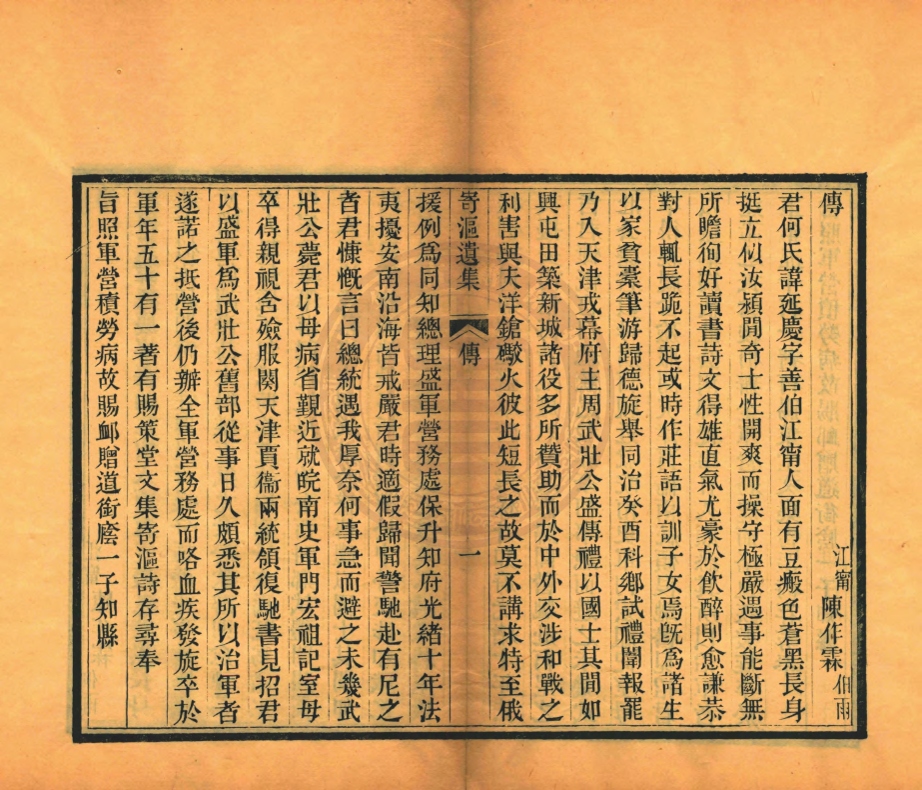 傳
江甯陳作霖伯雨
君何氏諱延慶字善伯江甯人面有豆瘢色蒼黑長身
挺立似汝潁間奇士性開爽而操守極嚴遇事能斷無
所瞻徇好讀書詩文得雄直氣尤豪於飲醉則愈謙恭
對人輒長跪不起或時作莊語以訓子女焉旣爲諸生
以家貧橐筆游歸德旋舉同治癸酉科鄉試禮闈報罷
乃入天津戎幕府主周武壯公盛傳禮以國士其間如
興屯田築新城諸役多所贊助而於中外交涉和戰之
利害與夫洋鎗礮火彼此短長之故莫不講求特至俄
寄漚遺集 傳 一
援例爲同知總理盛軍營務處保升知府光緒十年法
夷擾安南沿海皆戒嚴君時適假歸聞警馳赴有尼之
者君慷慨言曰總統遇我厚奈何事急而避之未幾武
壯公薨君以母病省覲近就皖南史軍門宏祖記室母
卒得親視含殮服闋天津賈衞兩統領復馳書見招君
以盛軍爲武壯公舊部從事日久頗悉其所以治軍者
遂諾之抵營後仍辦全軍營務處而咯血疾發旋卒於
軍年五十有一著有賜策堂文集寄漚詩存尋奉
旨照軍營積勞病故賜卹贈道銜廕一子知縣